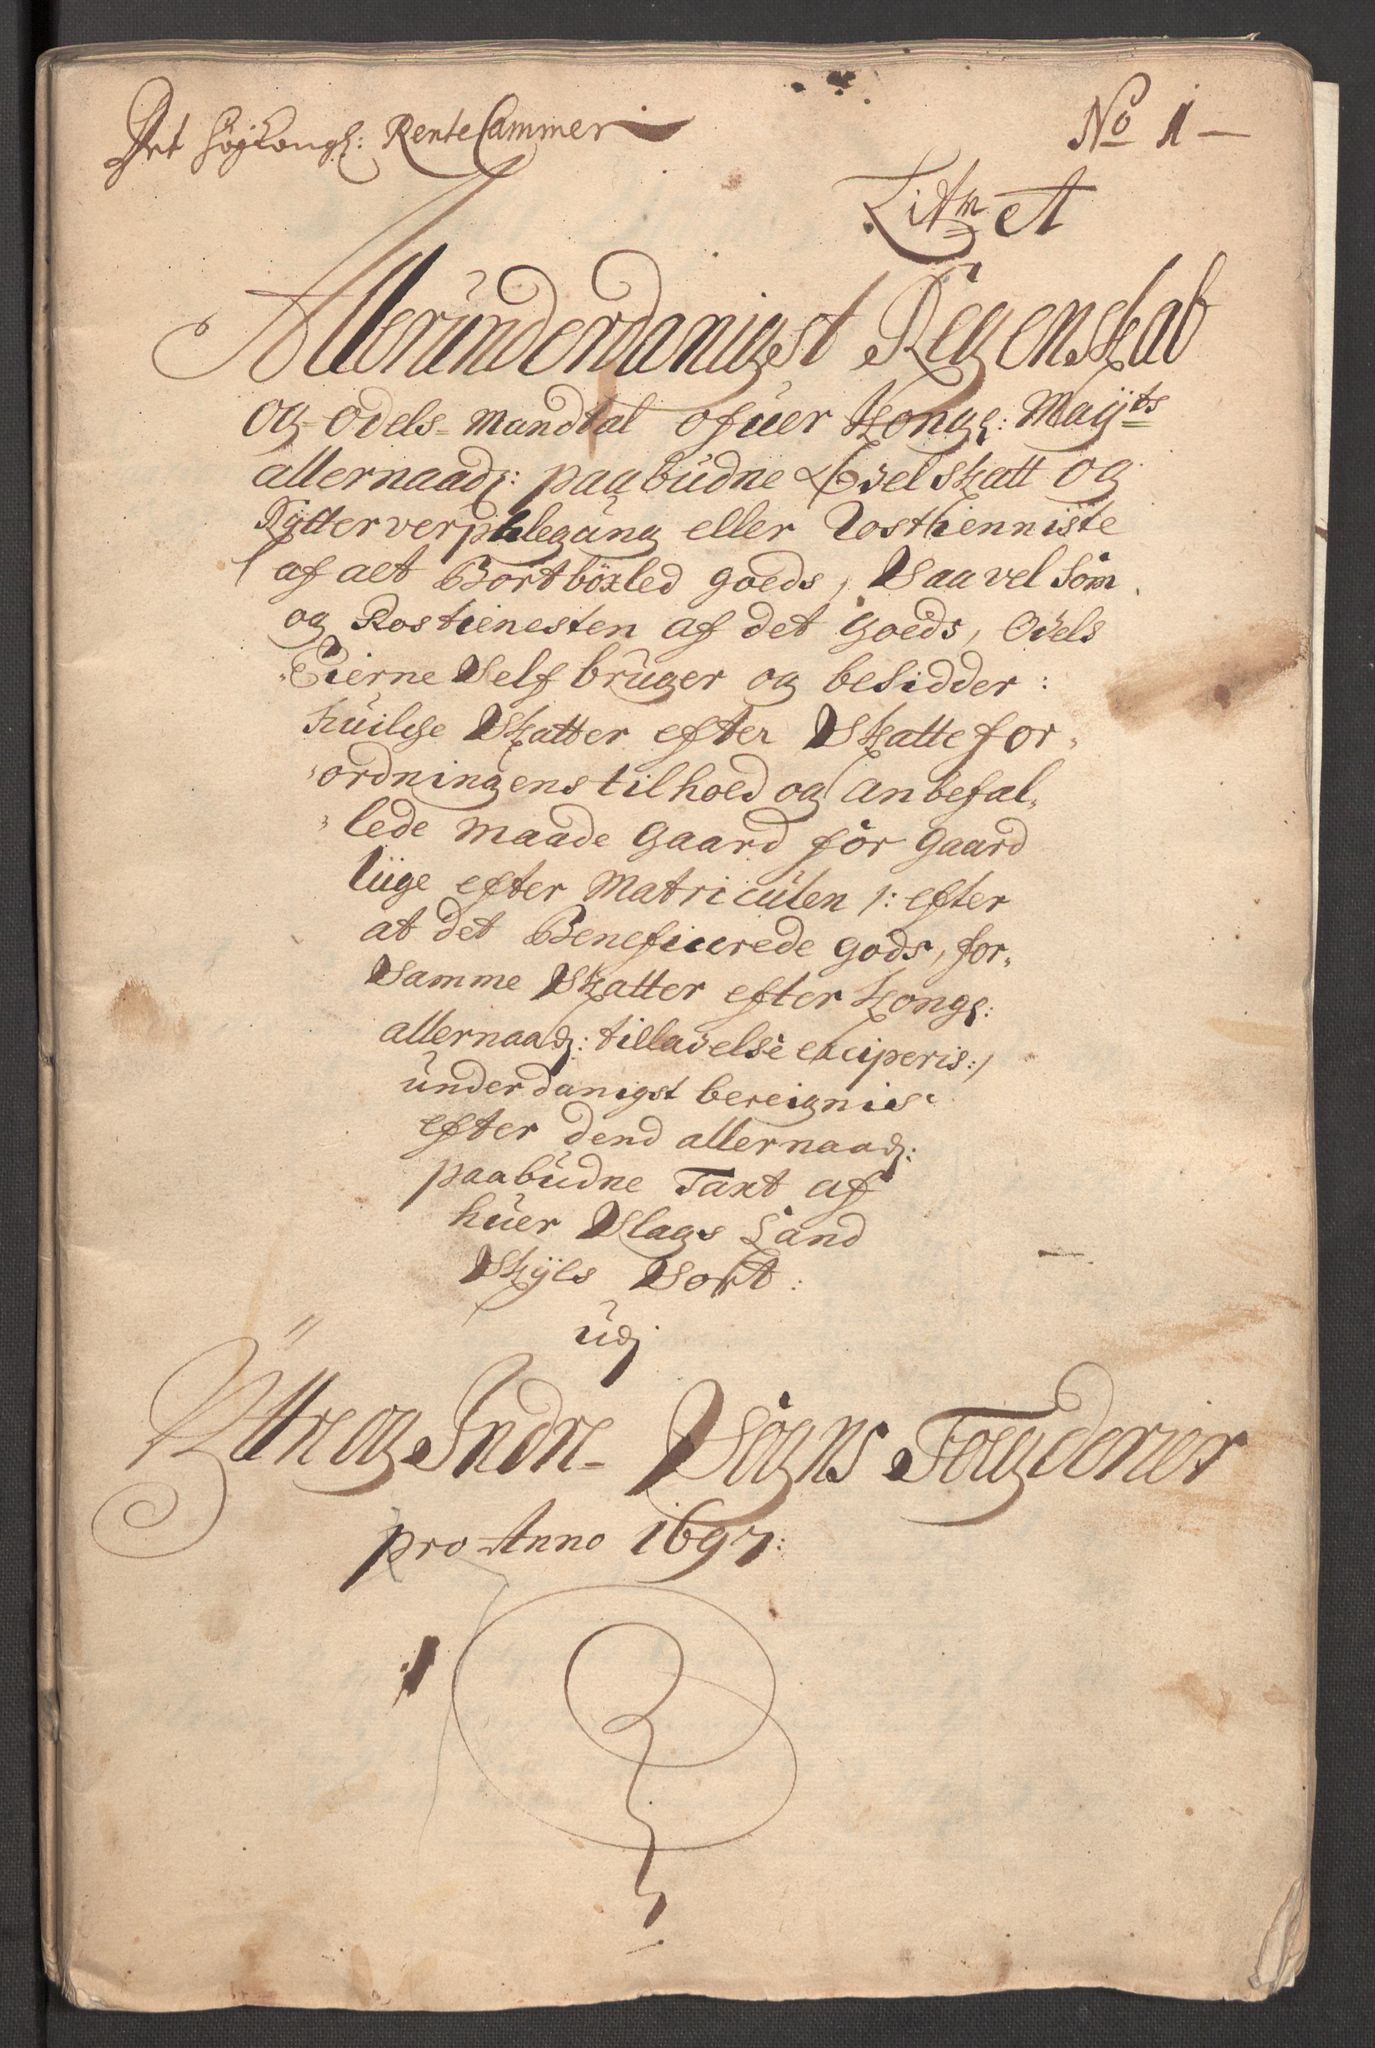 Det høÿkongl: RenteCammer
No 1
Litr A
Allerunderdanigst Regenskab
og Odels Mandtal ofuer Kongl: Mayts
allernaadl: paabudne Odelskatt og
Rytterverphlegung eller Rosthienniste
af alt Bortböxled goeds, Saavelsom
og Rostienesten af det Goeds, Odels
Eierne Self bruger og besidder:
huilche Skatter efter Skattefor-
ordningens tilhold og anbefal-
lede maade Gaard for Gaard
liige efter Matriculen /: efter
at det Beneficerede gods, for
Samme Skatter efter Kongl:
allernaadl: tilladelse exciperis:/
underdanigst bereignis
efter dend allernaadl:
paabudne Taxt af
huer Slags Land
Skyls Sort:
udj
Yttre og Indre Sogns Fougderier
pro Anno 1697: